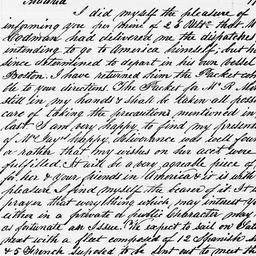 Madrid
I did myself the pleasure of
informing you in mine of 22 Ult° that M
Codman had delivered me the dispatches
intending to go to America himself; but h
since determined to depart in his own vessel
Boston. I have returned him the Packet
to your directions. The Packet for Mr R. M
still in my hands & shall be taken all poss
care of taking the precautions mentioned in
last. I am very happy to find my presen
of Mrs Jay's happy deliverance was well foun
or rather that my wishes on her acct were
fulfilled. It will be a very agreable piece of
for her & your friends in America & it is with
pleasure I find myself the bearer of it. It is
prayer that every thing which may interest yo
either in a private or public Character may
as fortunate an Issue. We expect to sail on Satu
next with a fleet composed of 12 Spanish s
& 5 French suposed to be sent out to meet th